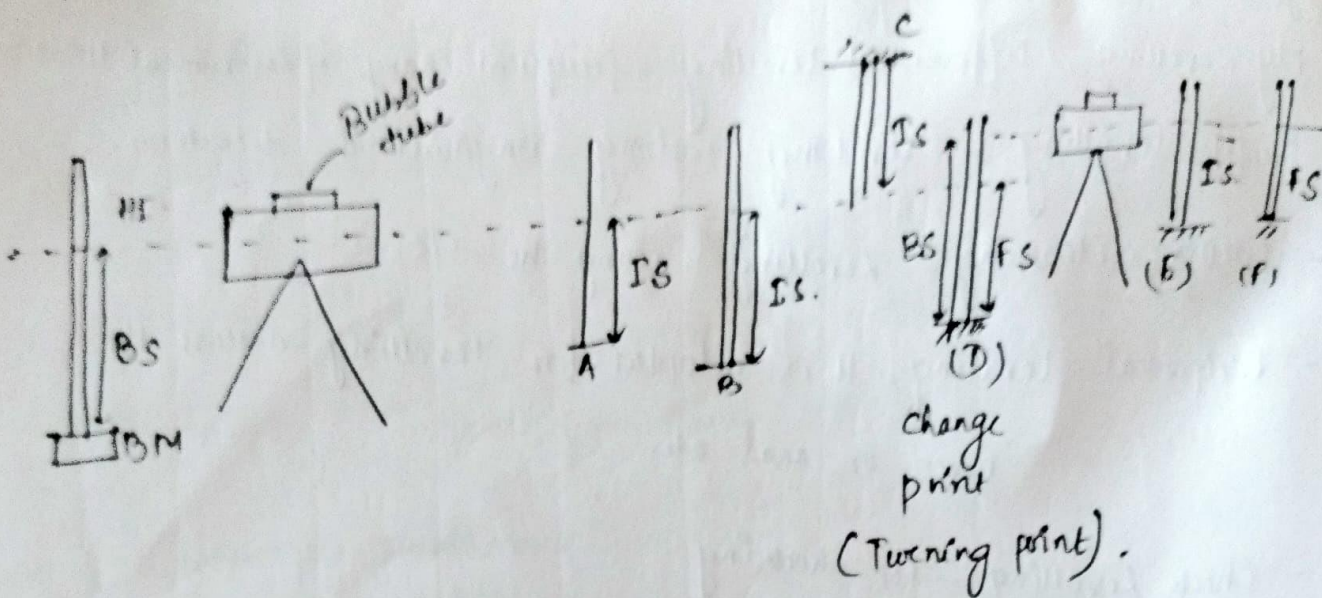 Bubble
tube
BS
BM
IS
A
IS.
B
C
IS
BS
FS
(D)
change
point
(Turning point).
IS
(E)
FS
(F)